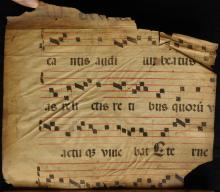 ca ntis audi iuit beatus
as reli ctis re ti bus quorũ
actu qʒ vinc bat Ete rne